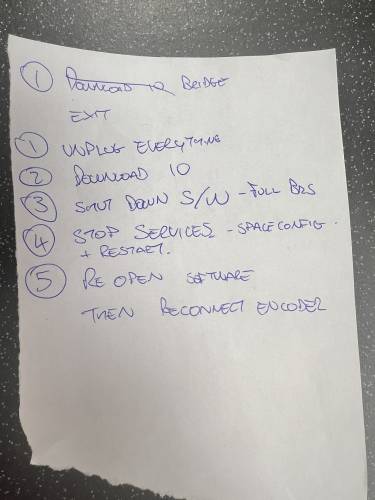 ① Download IO Bridge
EXIT
① UNPLUG EVERYTHING
② DOWNLOAD IO
③ SHUT DOWN S/W - FULL BRS
④ STOP SERVICES - SPACECONFIG.
+ RESTART.
⑤ RE OPEN SOFTWARE
THEN RECONNECT ENCODER